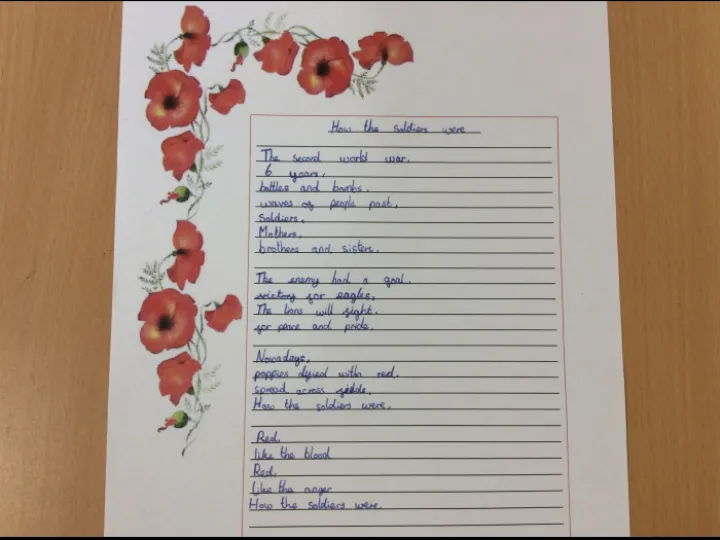 How the soldiers were
The second world war.
6 years,
battles and bombs.
waves of people past,
Soldiers,
Mothers,
brothers and sisters.
The enemy had a goal.
victory for eagles,
The lions will fight.
for peace and pride.
Nowadays,
poppies dyied with red.
spread across fields,
How the soldiers were.
Red,
like the blood
Red,
like the anger
How the soldiers were.